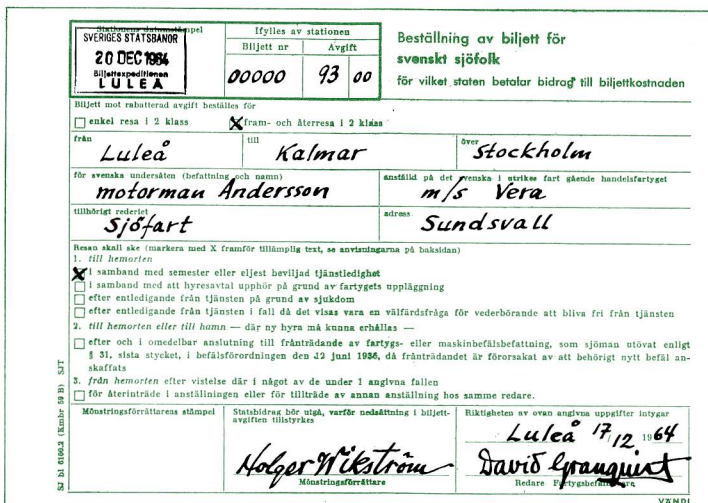 Stationens datumstämpel
SVERIGES STATSBANOR
20 DEC 1964
Biljettexpeditionen
LULEÅ
Ifylles av stationen
Biljett nr Avgift
00000 93 00
Beställning av biljett för
svenskt sjöfolk
för vilket staten betalar bidrag till biljettkostnaden
Biljett mot rabatterad avgift beställes för
enkel resa i 2 klass X fram- och återresa i 2 klass
från till över
Luleå Kalmar Stockholm
för svenska undersåten (befattning och namn) anställd på det svenska i utrikes fart gående handelsfartyget
motorman Andersson m/s Vera
tillhörigt rederiet adress
Sjöfart Sundsvall
Resan skall ske (markera med X framför tillämplig text, se anvisningarna på baksidan)
1. till hemorten
X i samband med semester eller eljest beviljad tjänstledighet
i samband med att hyresavtal upphör på grund av fartygets uppläggning
efter entledigande från tjänsten på grund av sjukdom
efter entledigande från tjänsten i fall då det visas vara en välfärdsfråga för vederbörande att bliva fri från tjänsten
2. till hemorten eller till hamn — där ny hyra må kunna erhållas —
efter och i omedelbar anslutning till frånträdande av fartygs- eller maskinbefälsbefattning, som sjöman utövat enligt
§ 31, sista stycket, i befälsförordningen den 12 juni 1936, då frånträdandet är förorsakat av att behörigt nytt befäl an-
skaffats
3. från hemorten efter vistelse där i något av de under 1 angivna fallen
för återinträde i anställningen eller för tillträde av annan anställning hos samme redare.
Mönstringsförrättarens stämpel
Statsbidrag bör utgå, varför nedsättning i biljett-
avgiften tillstyrkes
Holger Wikström
Mönstringsförrättare
Riktigheten av ovan angivna uppgifter intygar
Luleå 17/12 1964
David Granquist
Redare Fartygsbefälhavare
VÄND!
SJ bl 6106.2 (Kmbr 59 B) SJT